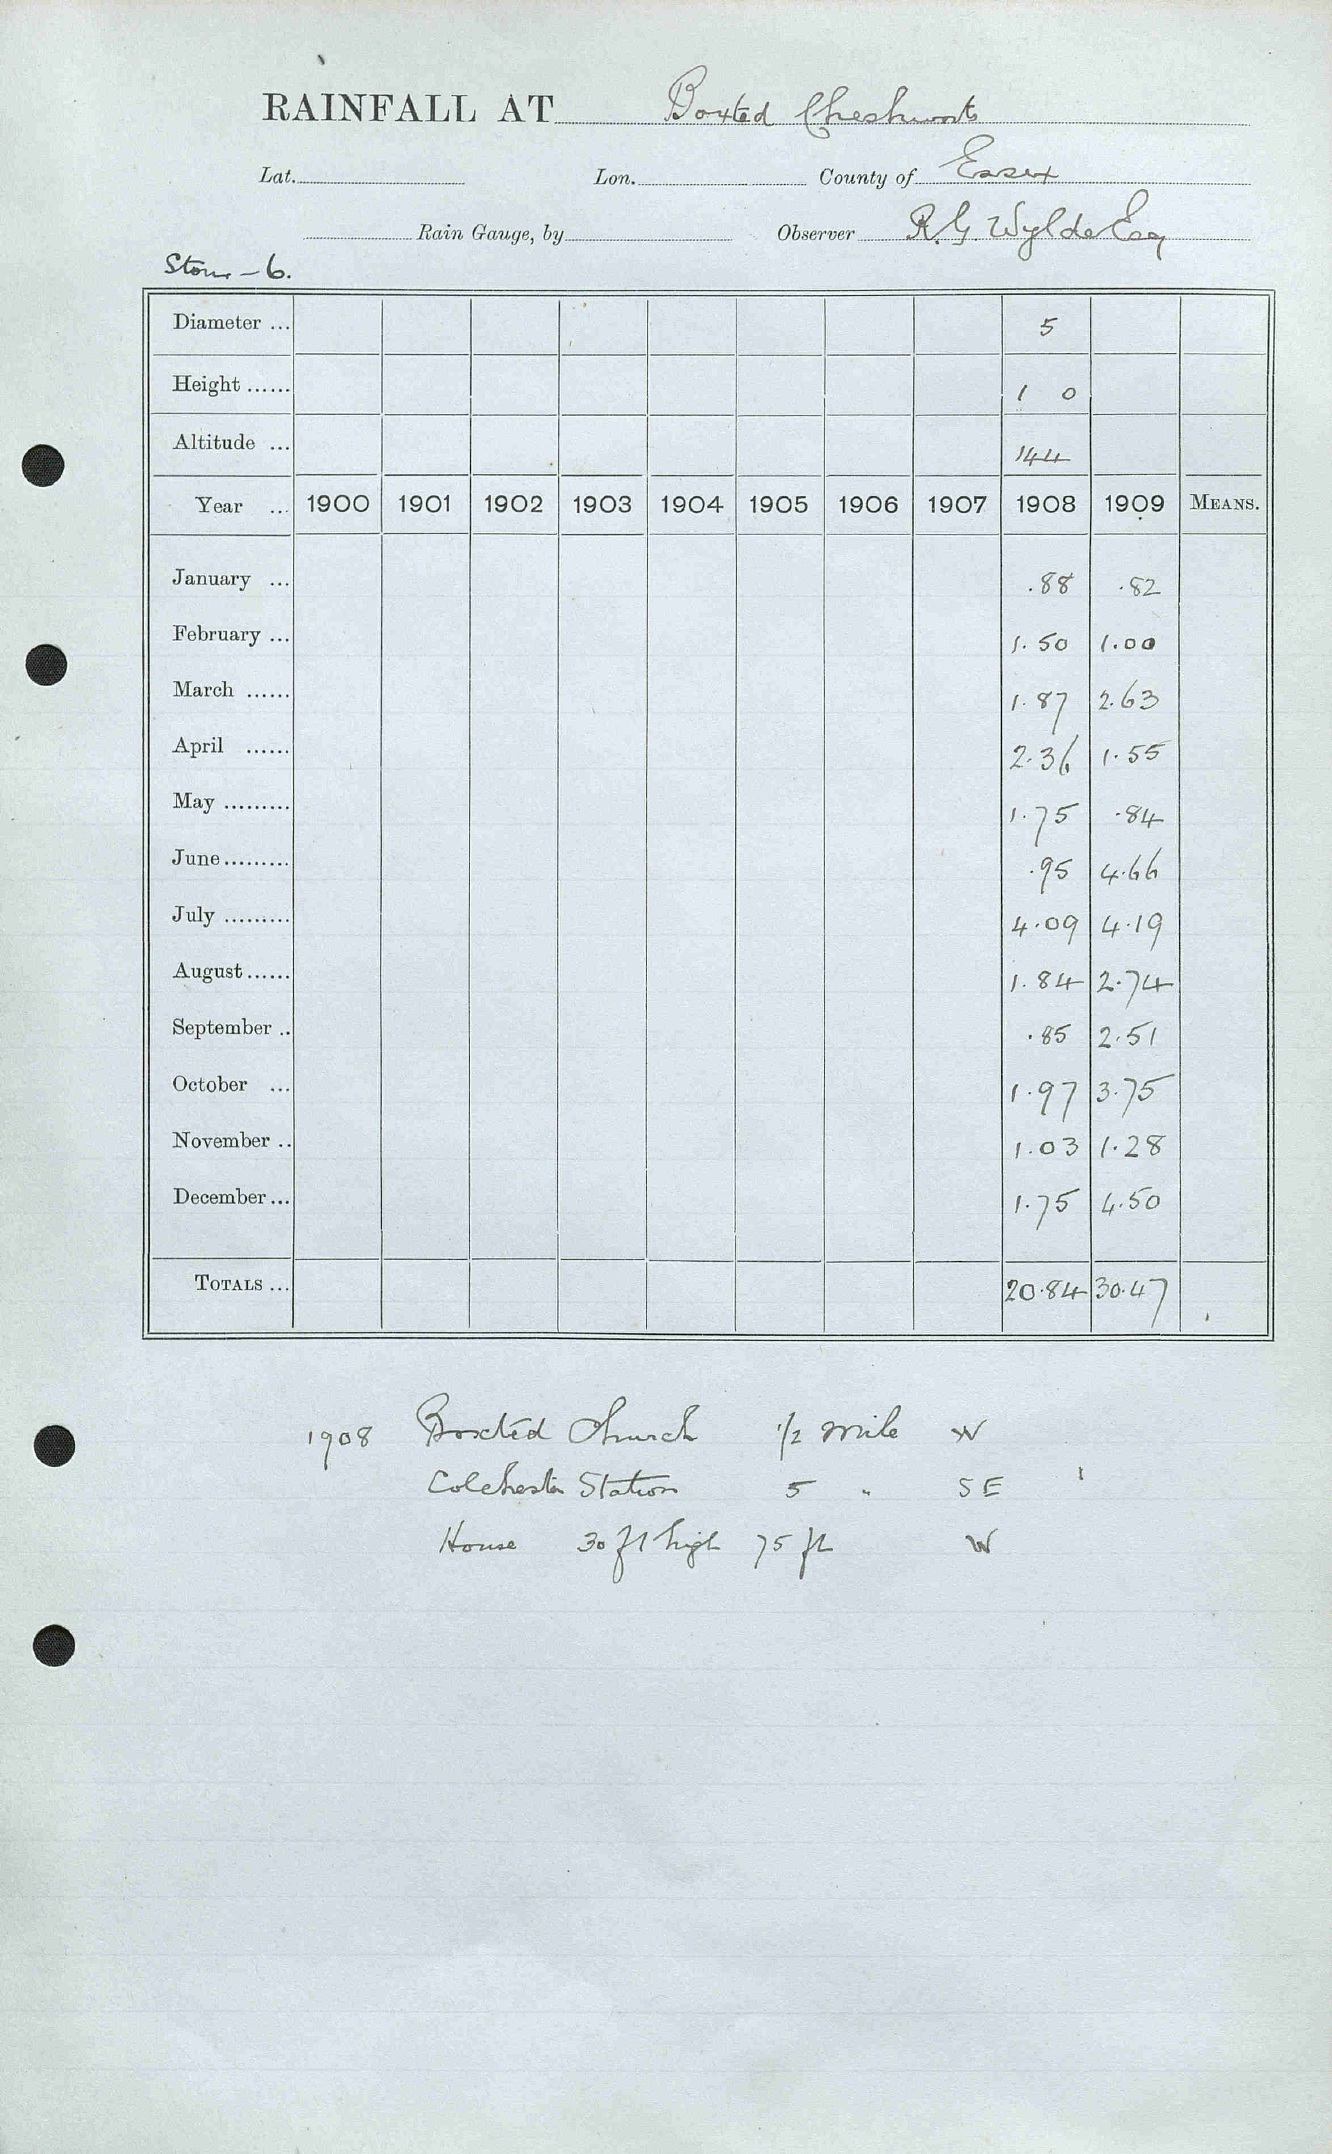 RAINFALL AT Boxted Cheshunts
Lat. Lon. County of Essex
Rain Gauge, by Observer R. G. Wylde Esq
Stour - 6.
Diameter ... 5
Height ...... 1 0
Altitude ... 144
Year ... 1900 1901 1902 1903 1904 1905 1906 1907 1908 1909 MEANS.
January ... .88 .82
February ... 1.50 1.00
March ...... 1.87 2.63
April ...... 2.36 1.55
May ......... 1.75 .84
June ......... .95 4.66
July ......... 4.09 4.19
August ...... 1.84 2.74
September .. .85 2.51
October ... 1.97 3.75
November .. 1.03 1.28
December ... 1.75 4.50
TOTALS ... 20.84 30.47
1908 Boxted Church 1/2 mile W
Colchester Station 5 " SE
House 30 ft high 75 ft W